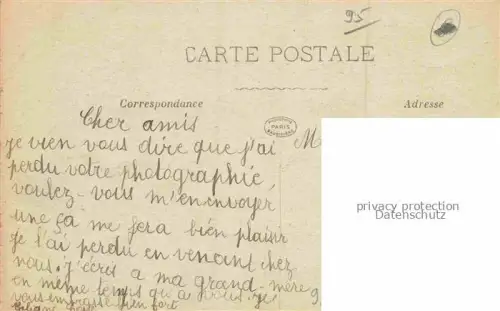 95
CARTE POSTALE
Correspondance
Adresse
PARIS
Cher amis
je vien vous dire que j'ai
M
perdu votre photographie,
voulez-vous m'en envoyer
une ça me fera bien plaisir
je l'ai perdu en venant chez
nous. j'écris a ma grand-mère
en même temps qu'a vous. je
vous embrasse bien fort
privacy protection
Datenschutz